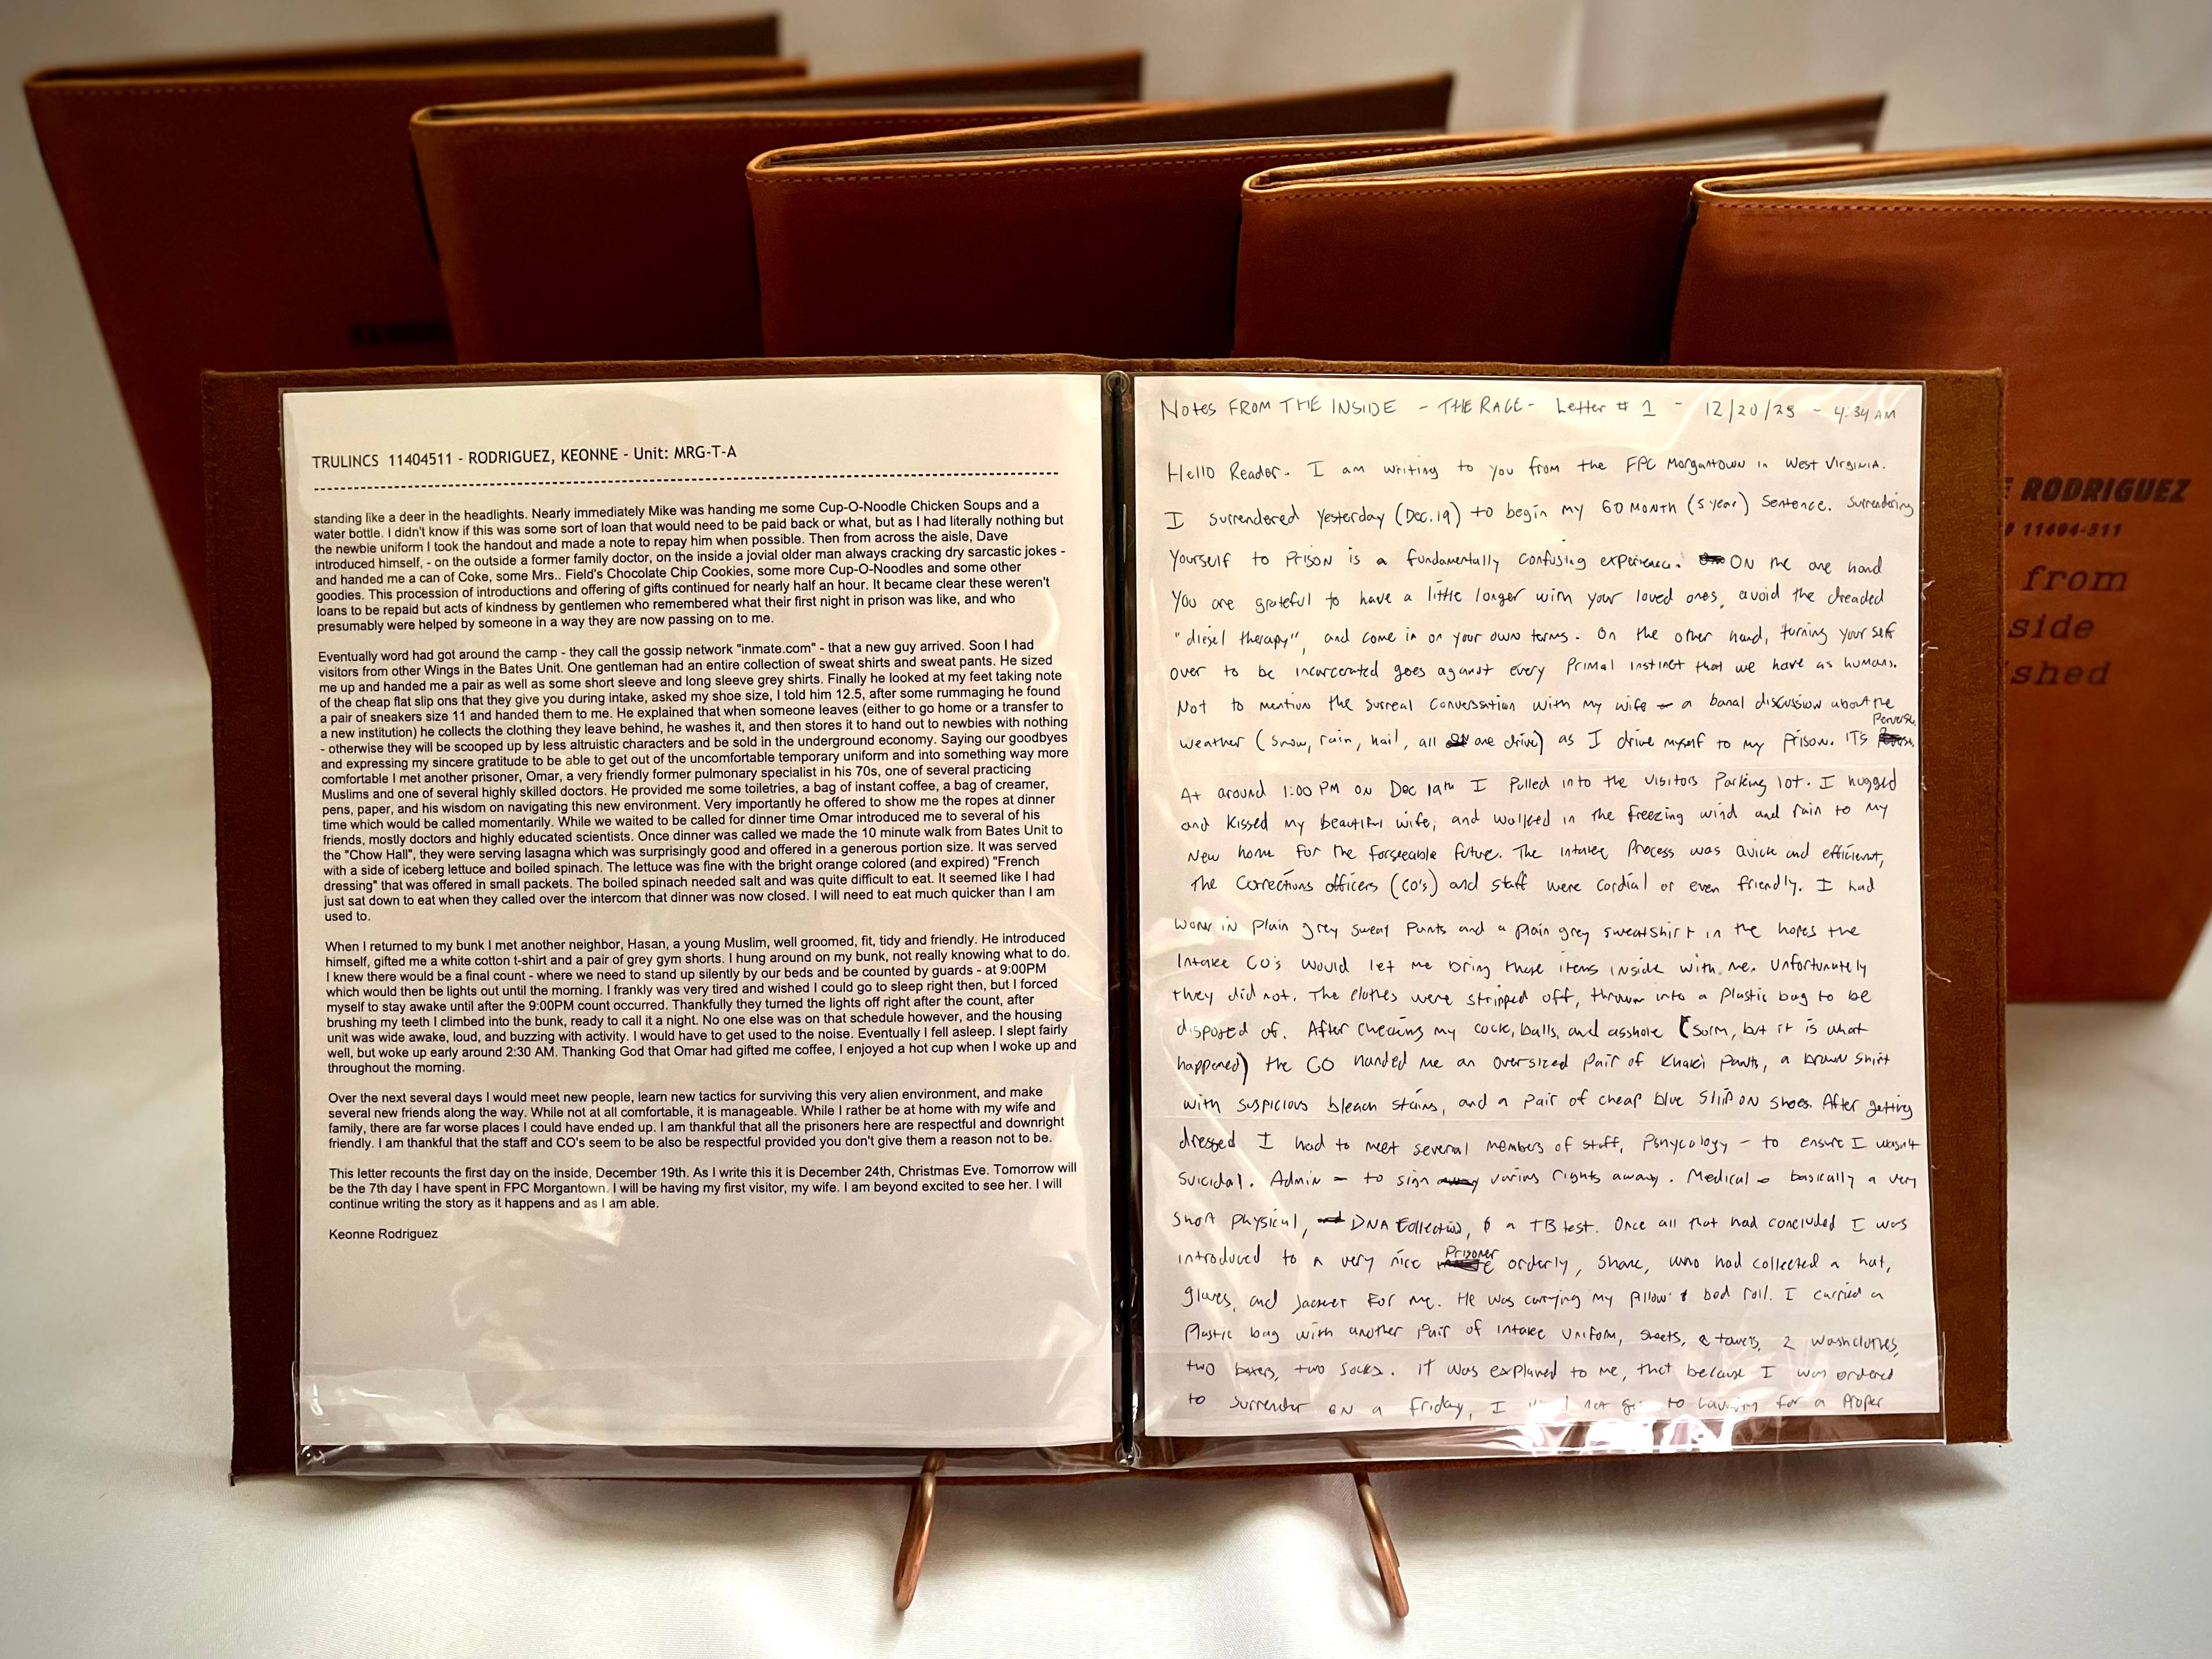 TRULINCS 11404511 - RODRIGUEZ, KEONNE - Unit: MRG-T-A
standing like a deer in the headlights. Nearly immediately Mike was handing me some Cup-O-Noodle Chicken Soups and a
water bottle. I didn't know if this was some sort of loan that would need to be paid back or what, but as I had literally nothing but
the newbie uniform I took the handout and made a note to repay him when possible. Then from across the aisle, Dave
introduced himself, - on the outside a former family doctor, on the inside a jovial older man always cracking dry sarcastic jokes -
and handed me a can of Coke, some Mrs.. Field's Chocolate Chip Cookies, some more Cup-O-Noodles and some other
goodies. This procession of introductions and offering of gifts continued for nearly half an hour. It became clear these weren't
loans to be repaid but acts of kindness by gentlemen who remembered what their first night in prison was like, and who
presumably were helped by someone in a way they are now passing on to me.
Eventually word had got around the camp - they call the gossip network "inmate.com" - that a new guy arrived. Soon I had
visitors from other Wings in the Bates Unit. One gentleman had an entire collection of sweat shirts and sweat pants. He sized
me up and handed me a pair as well as some short sleeve and long sleeve grey shirts. Finally he looked at my feet taking note
of the cheap flat slip ons that they give you during intake, asked my shoe size, I told him 12.5, after some rummaging he found
a pair of sneakers size 11 and handed them to me. He explained that when someone leaves (either to go home or a transfer to
a new institution) he collects the clothing they leave behind, he washes it, and then stores it to hand out to newbies with nothing
- otherwise they will be scooped up by less altruistic characters and be sold in the underground economy. Saying our goodbyes
and expressing my sincere gratitude to be able to get out of the uncomfortable temporary uniform and into something way more
comfortable I met another prisoner, Omar, a very friendly former pulmonary specialist in his 70s, one of several practicing
Muslims and one of several highly skilled doctors. He provided me some toiletries, a bag of instant coffee, a bag of creamer,
pens, paper, and his wisdom on navigating this new environment. Very importantly he offered to show me the ropes at dinner
time which would be called momentarily. While we waited to be called for dinner time Omar introduced me to several of his
friends, mostly doctors and highly educated scientists. Once dinner was called we made the 10 minute walk from Bates Unit to
the "Chow Hall", they were serving lasagna which was surprisingly good and offered in a generous portion size. It was served
with a side of iceberg lettuce and boiled spinach. The lettuce was fine with the bright orange colored (and expired) "French
dressing" that was offered in small packets. The boiled spinach needed salt and was quite difficult to eat. It seemed like I had
just sat down to eat when they called over the intercom that dinner was now closed. I will need to eat much quicker than I am
used to.
When I returned to my bunk I met another neighbor, Hasan, a young Muslim, well groomed, fit, tidy and friendly. He introduced
himself, gifted me a white cotton t-shirt and a pair of grey gym shorts. I hung around on my bunk, not really knowing what to do.
I knew there would be a final count - where we need to stand up silently by our beds and be counted by guards - at 9:00PM
which would then be lights out until the morning. I frankly was very tired and wished I could go to sleep right then, but I forced
myself to stay awake until after the 9:00PM count occurred. Thankfully they turned the lights off right after the count, after
brushing my teeth I climbed into the bunk, ready to call it a night. No one else was on that schedule however, and the housing
unit was wide awake, loud, and buzzing with activity. I would have to get used to the noise. Eventually I fell asleep. I slept fairly
well, but woke up early around 2:30 AM. Thanking God that Omar had gifted me coffee, I enjoyed a hot cup when I woke up and
throughout the morning.
Over the next several days I would meet new people, learn new tactics for surviving this very alien environment, and make
several new friends along the way. While not at all comfortable, it is manageable. While I rather be at home with my wife and
family, there are far worse places I could have ended up. I am thankful that all the prisoners here are respectful and downright
friendly. I am thankful that the staff and CO's seem to be also be respectful provided you don't give them a reason not to be.
This letter recounts the first day on the inside, December 19th. As I write this it is December 24th, Christmas Eve. Tomorrow will
be the 7th day I have spent in FPC Morgantown. I will be having my first visitor, my wife. I am beyond excited to see her. I will
continue writing the story as it happens and as I am able.
Keonne Rodriguez
Notes FROM THE INSIDE - THE RAGE - Letter # 1 - 12/20/25 - 4:34 AM
Hello Reader - I am writing to you from the FPC Morgantown in West Virginia.
I surrendered yesterday (Dec. 19) to begin my 60 MONTH (5 year) sentence. Surrendering
yourself to Prison is a fundamentally confusing experience. ON the one hand
you are grateful to have a little longer with your loved ones, avoid the dreaded
"diesel therapy", and come in on your own terms. On the other hand, turning yourself
over to be incarcerated goes against every primal instinct that we have as humans.
Not to mention the surreal conversation with my wife - a banal discussion about the
weather (snow, rain, hail, all one drive) as I drive myself to my prison. ITS Perverse.
At around 1:00 PM on Dec 19th I pulled into the visitors parking lot. I hugged
and kissed my beautiful wife, and walked in the freezing wind and rain to my
new home for the forseeable future. The intake process was quick and efficient,
the corrections officers (CO's) and staff were cordial or even friendly. I had
worn in plain grey sweat pants and a plain grey sweatshirt in the hopes the
intake CO's would let me bring those items inside with me. Unfortunately
they did not. The clothes were stripped off, thrown into a plastic bag to be
disposed of. After checking my cock, balls, and asshole (sorry, but it is what
happened) the CO handed me an oversized pair of khaki pants, a brown shirt
with suspicious bleach stains, and a pair of cheap blue slip on shoes. After getting
dressed I had to meet several members of staff, Psnycology - to ensure I wasn't
suicidal. Admin - to sign various rights away. Medical - basically a very
short physical, DNA Collection, & a TB test. Once all that had concluded I was
introduced to a very nice Prisoner orderly, Shane, who had collected a hat,
gloves, and jacket for me. He was carrying my pillow & bed roll. I carried a
plastic bag with another pair of intake uniform, sheets, 2 towels, 2 washclothes,
two boxers, two socks. It was explained to me, that because I was ordered
to surrender on a Friday, I not to laundry for a proper
RODRIGUEZ
11404-511
from
side
shed